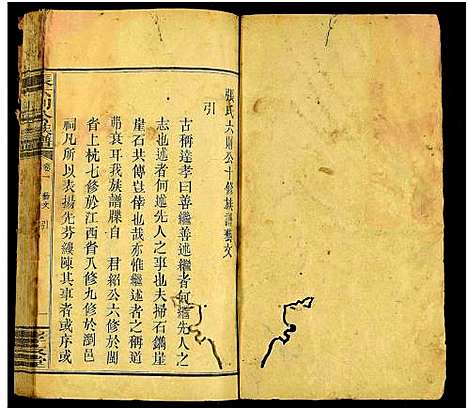 張氏六則公十修族譜藝文
引
古稱達孝曰善繼善述繼者何繼先人之
志也述者何述先人之事也夫掃石鐫崖
崖石共傳豈倖也哉亦惟繼述者之稱道
弗衰耳我族譜牒自 君紹公六修於閩
省上杭七修於江西省八修九修於瀏邑
祠凡所以表揚先芬縷陳其事者或序或
卷一 藝文 引